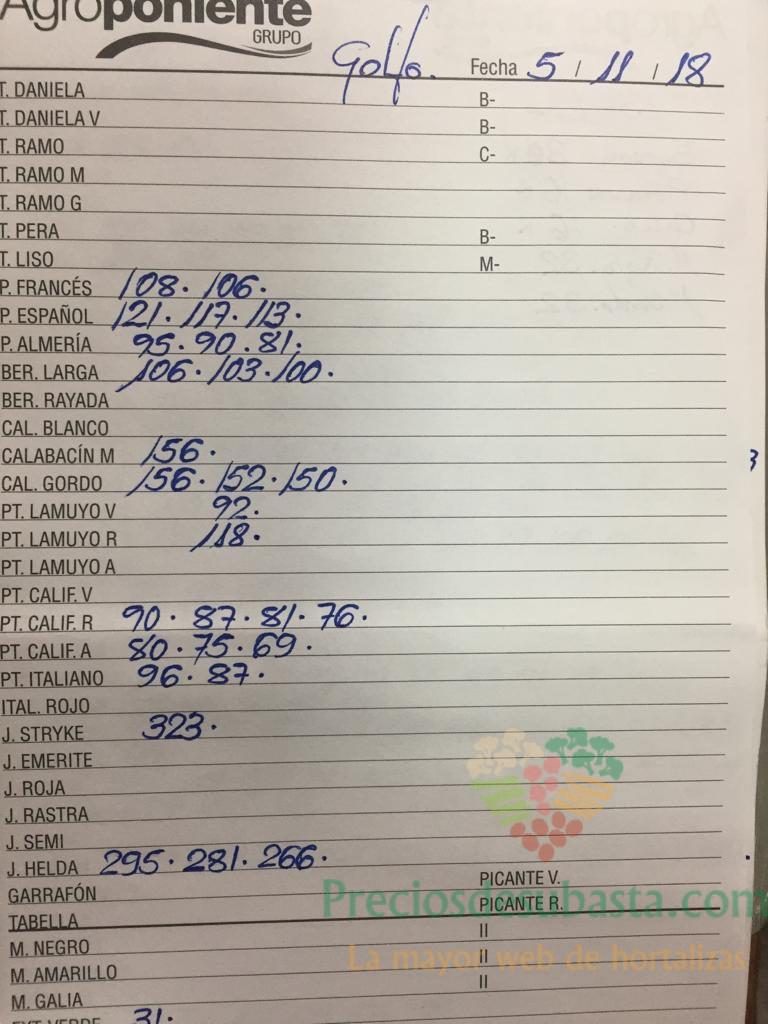 Agroponiente
GRUPO
Golfo. Fecha 5 / 11 / 18
T. DANIELA B-
T. DANIELA V B-
T. RAMO C-
T. RAMO M
T. RAMO G
T. PERA B-
T. LISO M-
P. FRANCÉS 108. 106.
P. ESPAÑOL 121. 117. 113.
P. ALMERÍA 95. 90. 81.
BER. LARGA 106. 103. 100.
BER. RAYADA
CAL. BLANCO
CALABACÍN M 156.
CAL. GORDO 156. 152. 150.
PT. LAMUYO V 92.
PT. LAMUYO R 118.
PT. LAMUYO A
PT. CALIF. V
PT. CALIF. R 90. 87. 81. 76.
PT. CALIF. A 80. 75. 69.
PT. ITALIANO 96. 87.
ITAL. ROJO
J. STRYKE 323.
J. EMERITE
J. ROJA
J. RASTRA
J. SEMI
J. HELDA 295. 281. 266.
GARRAFÓN PICANTE V.
TABELLA PICANTE R.
M. NEGRO II
M. AMARILLO II
M. GALIA II
EXT. VERDE 31.
Preciosdesubasta.com
La mayor web de hortalizas